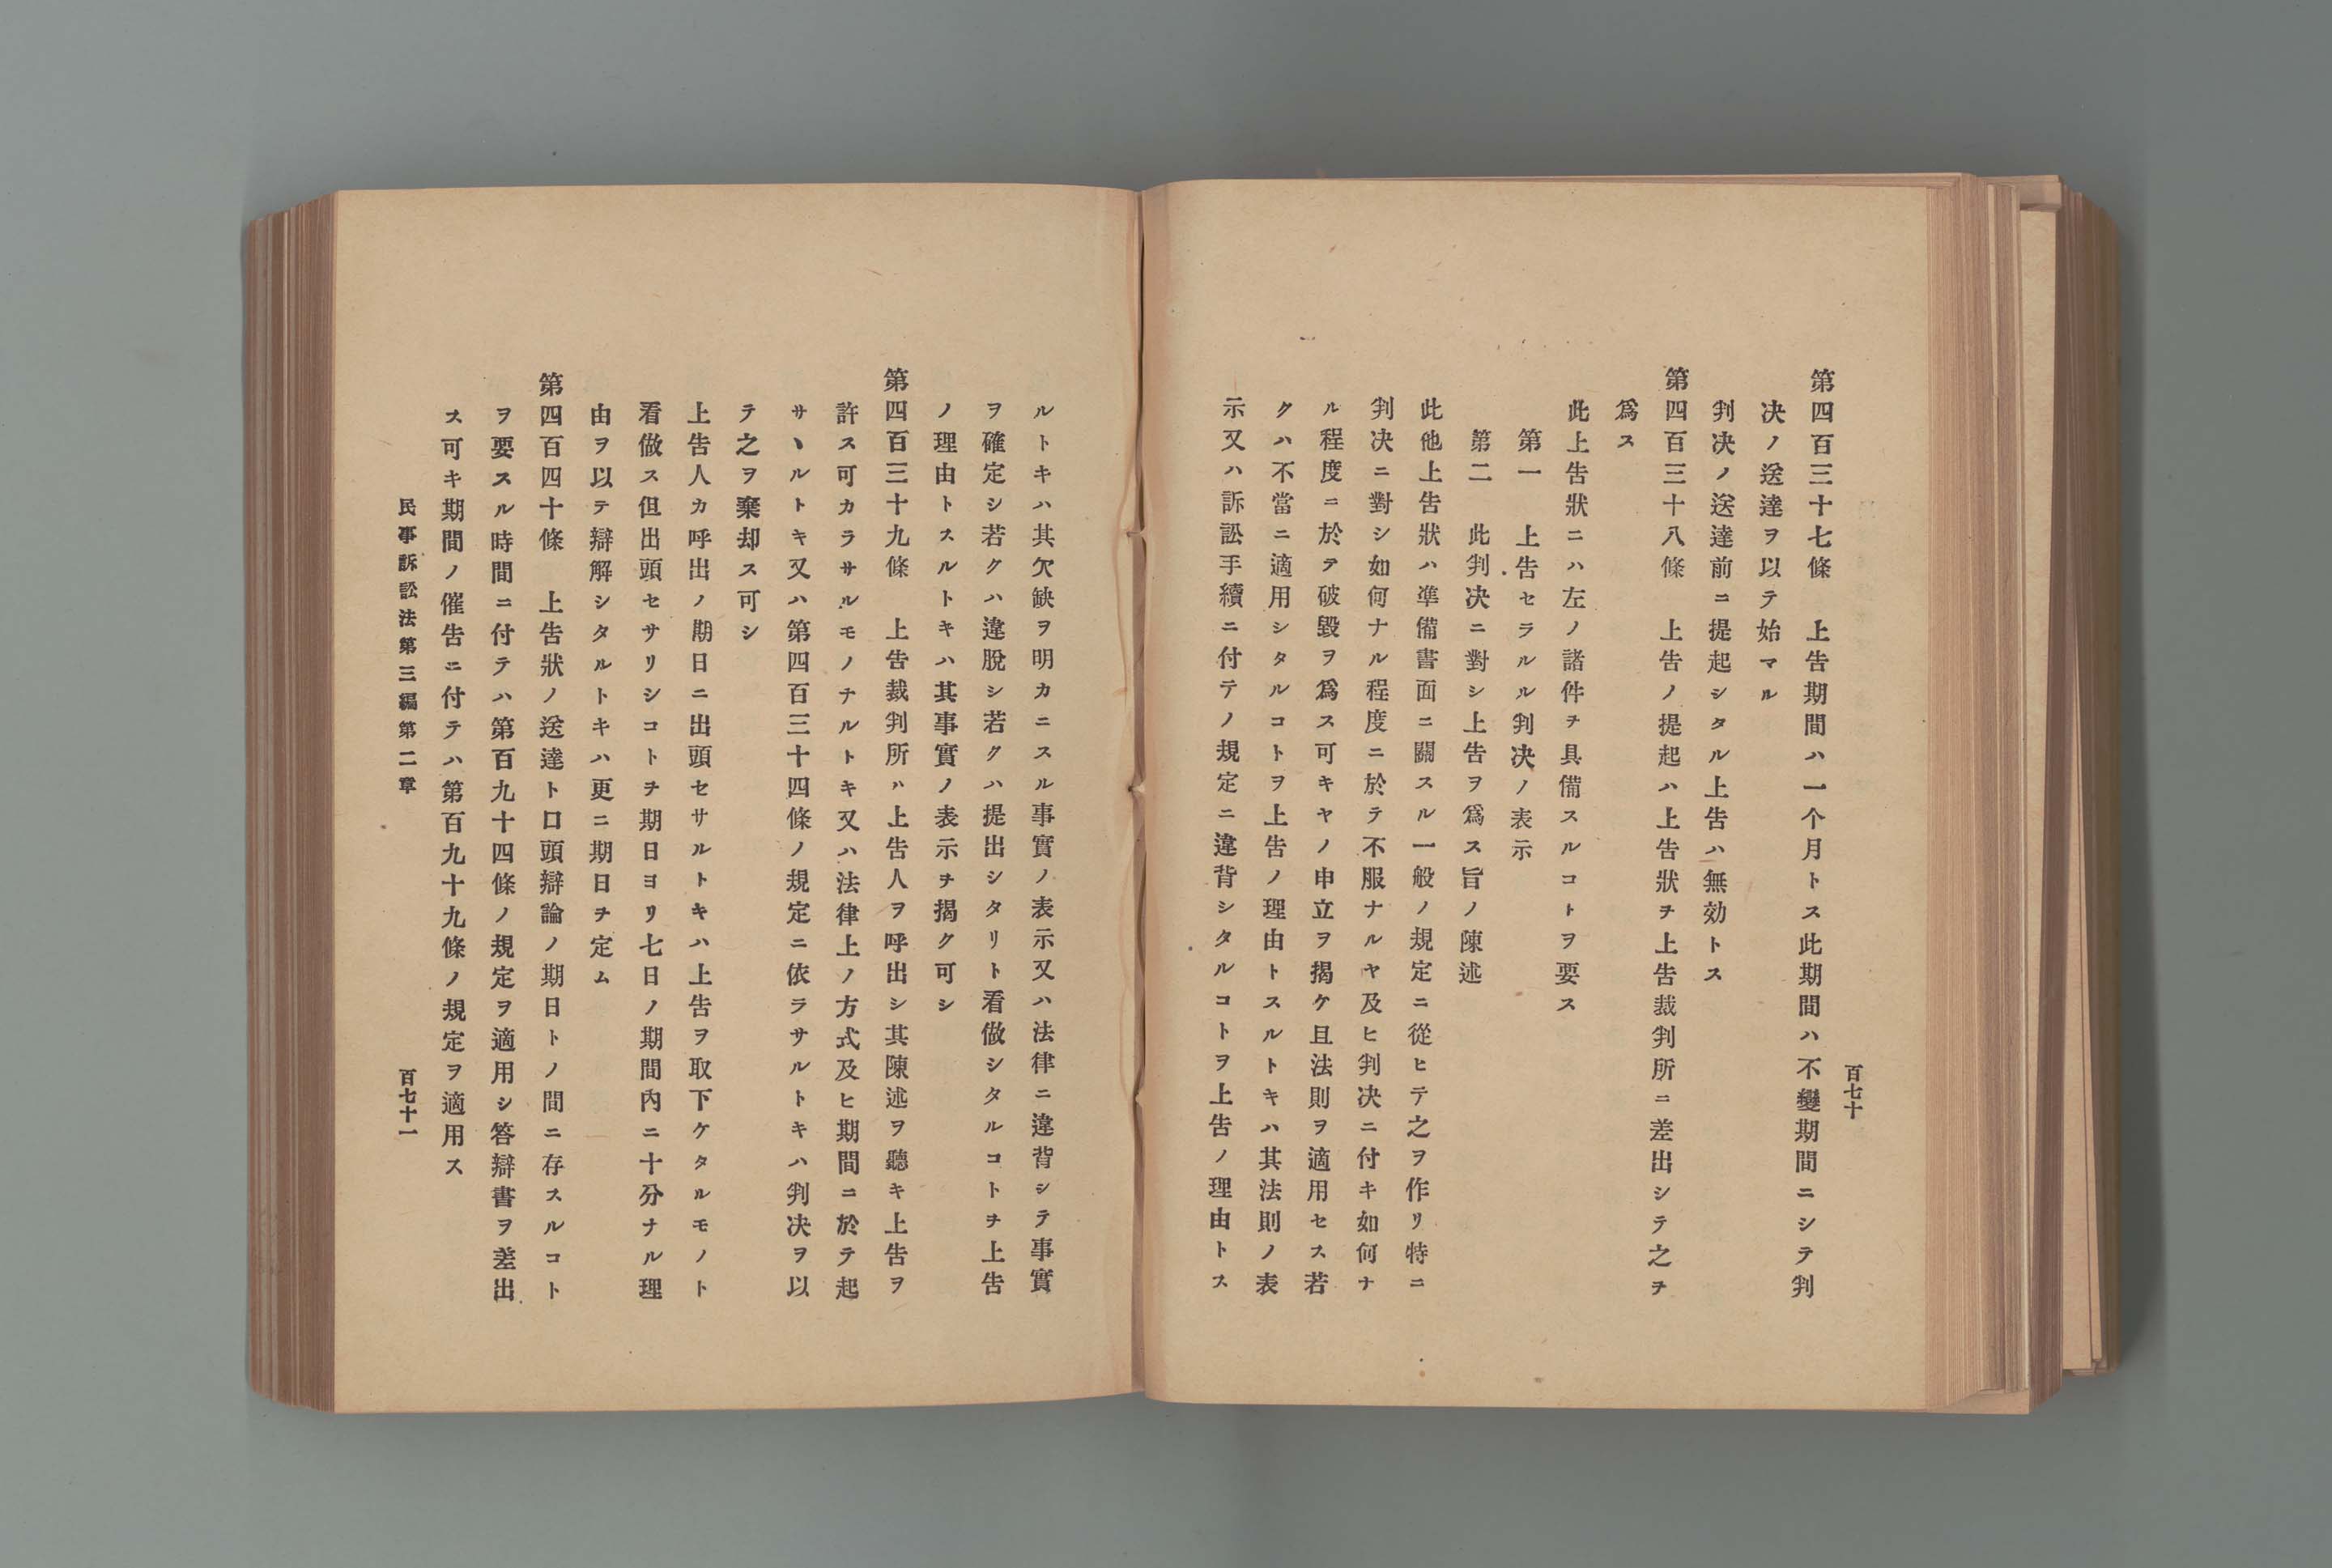 百七十
第四百三十七條　上告期間ハ一个月トス此期間ハ不變期間ニシテ判
决ノ送達ヲ以テ始マル
判决ノ送達前ニ提起シタル上告ハ無効トス
第四百三十八條　上告ノ提起ハ上告狀ヲ上告裁判所ニ差出シテ之ヲ
爲ス
此上告狀ニハ左ノ諸件ヲ具備スルコトヲ要ス
第一　上告セラルル判决ノ表示
第二　此判决ニ對シ上告ヲ爲ス旨ノ陳述
此他上告狀ハ準備書面ニ關スル一般ノ規定ニ從ヒテ之ヲ作リ特ニ
判决ニ對シ如何ナル程度ニ於テ不服ナルヤ及ヒ判决ニ付キ如何ナ
ル程度ニ於テ破毀ヲ爲ス可キヤノ申立ヲ揭ケ且法則ヲ適用セス若
クハ不當ニ適用シタルコトヲ上告ノ理由トスルトキハ其法則ノ表
示又ハ訴訟手續ニ付テノ規定ニ違背シタルコトヲ上告ノ理由トス
ルトキハ其欠缺ヲ明カニスル事實ノ表示又ハ法律ニ違背シテ事實
ヲ確定シ若クハ違脫シ若クハ提出シタリト看做シタルコトヲ上告
ノ理由トスルトキハ其事實ノ表示ヲ揭ク可シ
第四百三十九條　上告裁判所ハ上告人ヲ呼出シ其陳述ヲ聽キ上告ヲ
許ス可カラサルモノナルトキ又ハ法律上ノ方式及ヒ期間ニ於テ起
サヽルトキ又ハ第四百三十四條ノ規定ニ依ラサルトキハ判决ヲ以
テ之ヲ棄却ス可シ
上告人カ呼出ノ期日ニ出頭セサルトキハ上告ヲ取下ケタルモノト
看做ス但出頭セサリシコトヲ期日ヨリ七日ノ期間內ニ十分ナル理
由ヲ以テ辯解シタルトキハ更ニ期日ヲ定ム
第四百四十條　上告狀ノ送達ト口頭辯論ノ期日トノ間ニ存スルコト
ヲ要スル時間ニ付テハ第百九十四條ノ規定ヲ適用シ答辯書ヲ差出
ス可キ期間ノ催告ニ付テハ第百九十九條ノ規定ヲ適用ス
民事訴訟法第三編第二章
百七十一